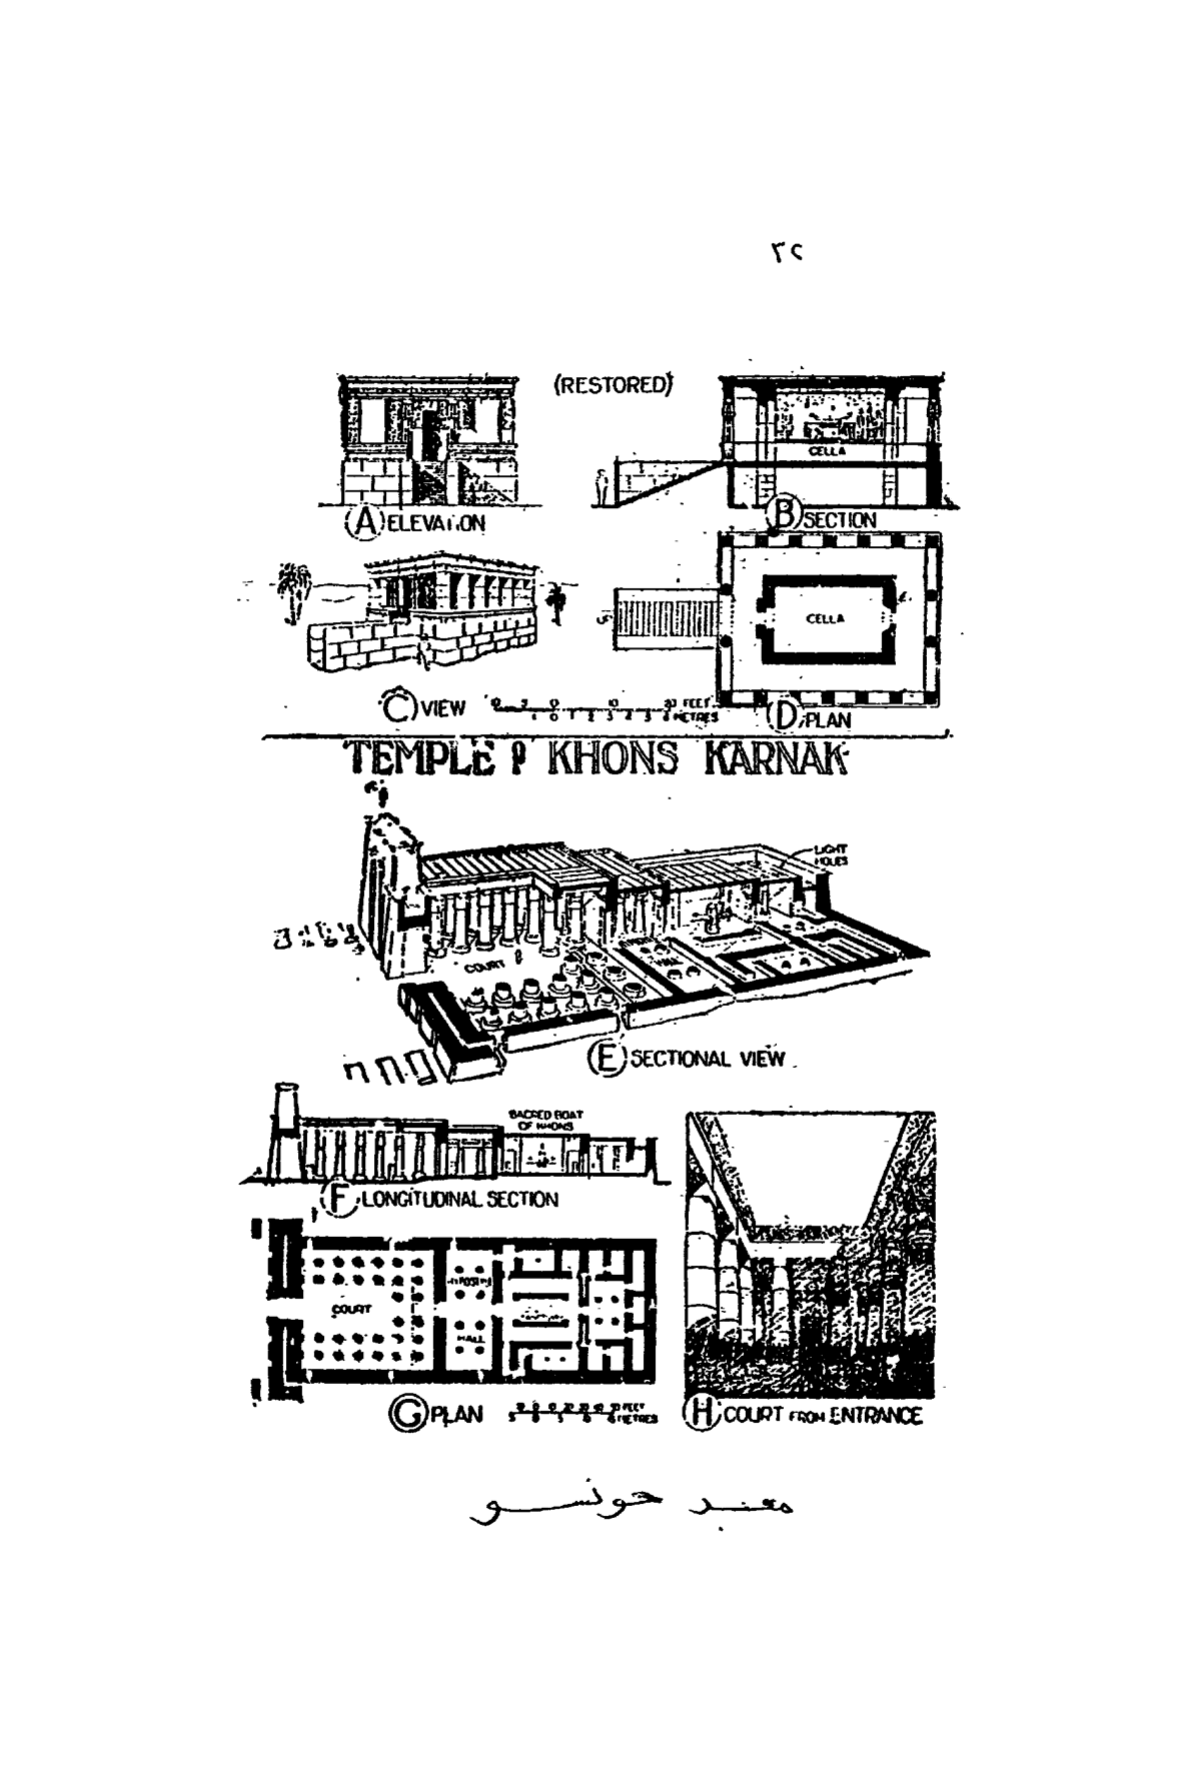 ٣٢
(RESTORED)
CELLA
A ELEVATION
B SECTION
CELLA
C VIEW
10 5 0 10 20 FEET
1 0 1 2 3 4 5 6 METRES
D PLAN
TEMPLE OF KHONS KARNAK
LIGHT
HOLES
COURT
HALL
E SECTIONAL VIEW
SACRED BOAT
OF KHONS
F LONGITUDINAL SECTION
COURT
HALL
G PLAN
FEET
METRES
H COURT FROM ENTRANCE
معبد خونسو